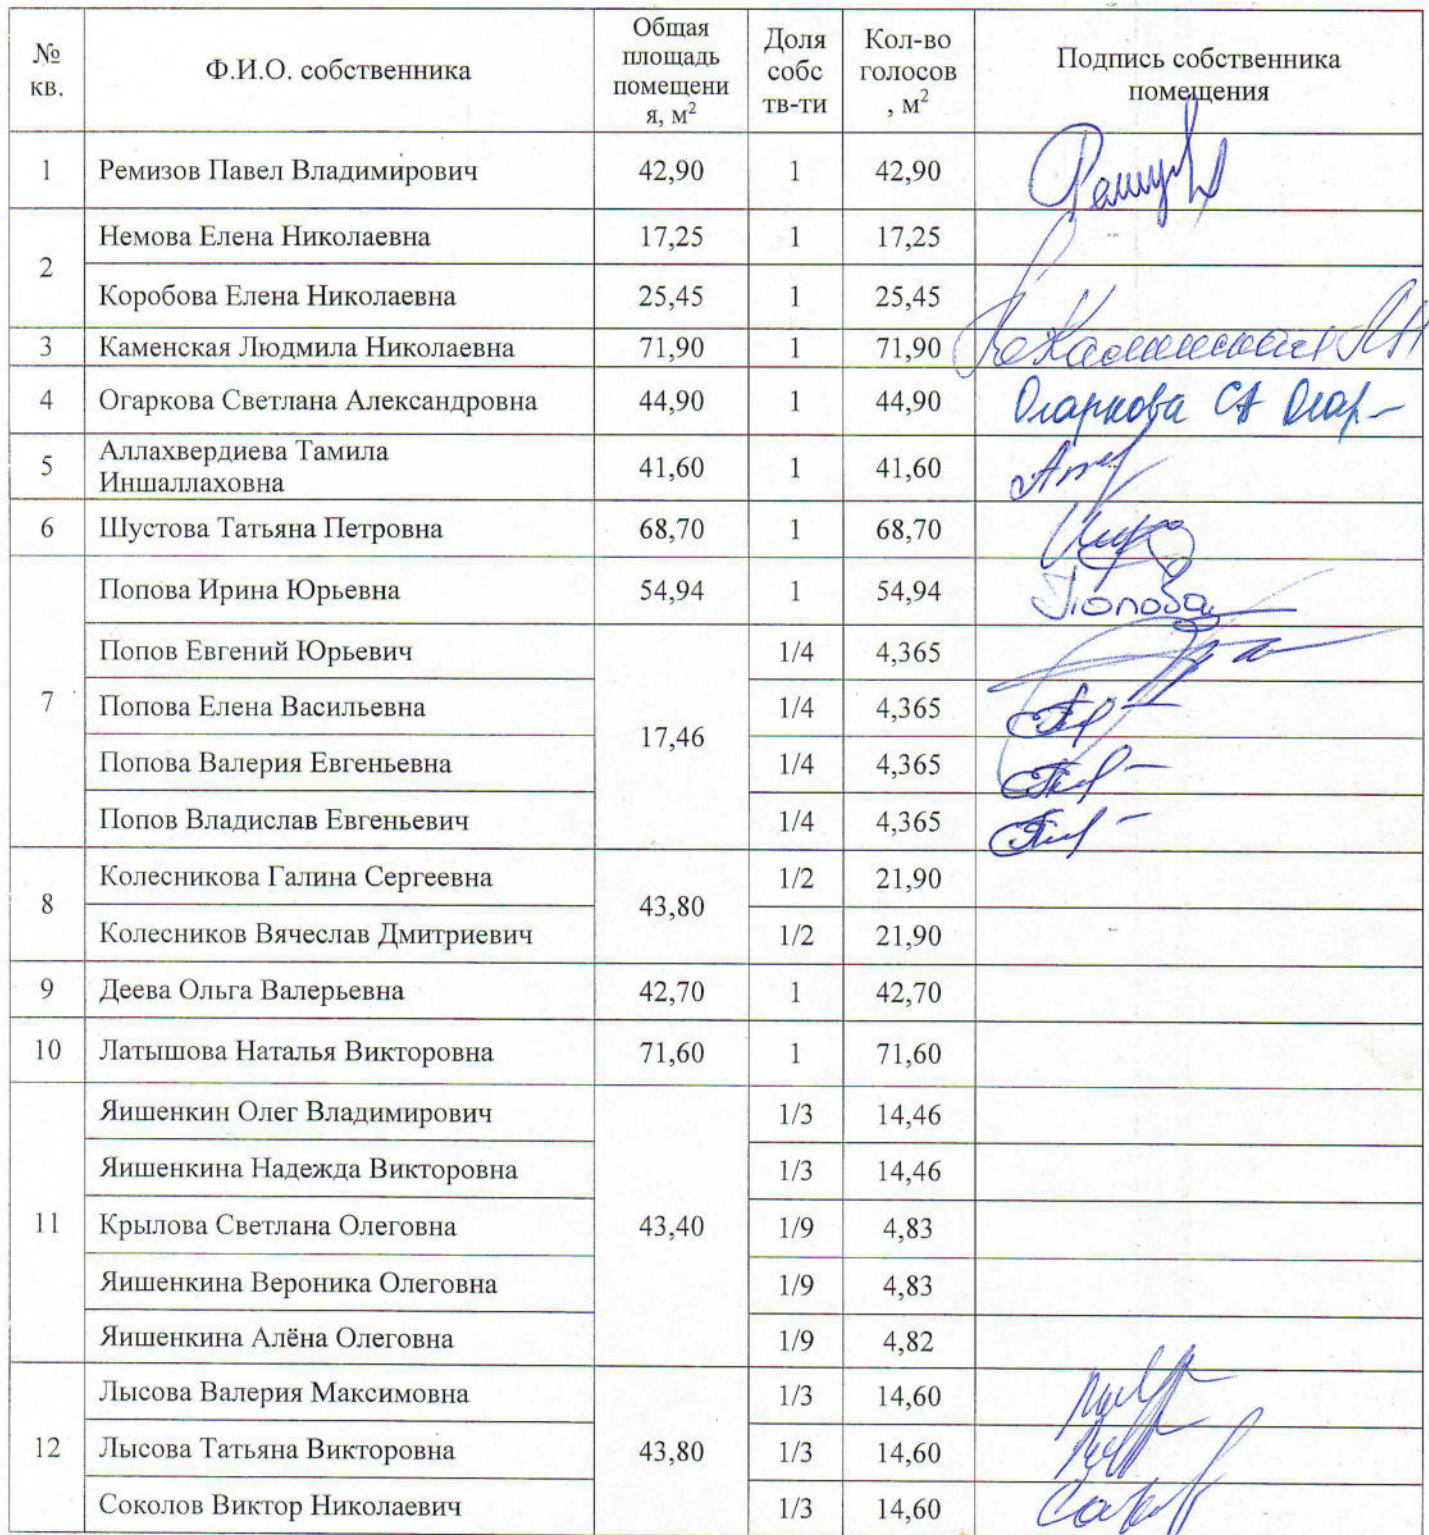 № кв.
Ф.И.О. собственника
Общая площадь помещени я, м²
Доля собс тв-ти
Кол-во голосов , м²
Подпись собственника помещения
1 Ремизов Павел Владимирович 42,90 1 42,90
2 Немова Елена Николаевна 17,25 1 17,25
Коробова Елена Николаевна 25,45 1 25,45
3 Каменская Людмила Николаевна 71,90 1 71,90 Каменская ЛН
4 Огаркова Светлана Александровна 44,90 1 44,90 Огаркова СА Огар-
5 Аллахвердиева Тамила
Иншаллаховна 41,60 1 41,60
6 Шустова Татьяна Петровна 68,70 1 68,70
7 Попова Ирина Юрьевна 54,94 1 54,94 Попова
Попов Евгений Юрьевич 17,46 1/4 4,365
Попова Елена Васильевна 1/4 4,365
Попова Валерия Евгеньевна 1/4 4,365
Попов Владислав Евгеньевич 1/4 4,365
8 Колесникова Галина Сергеевна 43,80 1/2 21,90
Колесников Вячеслав Дмитриевич 1/2 21,90
9 Деева Ольга Валерьевна 42,70 1 42,70
10 Латышова Наталья Викторовна 71,60 1 71,60
11 Яишенкин Олег Владимирович 43,40 1/3 14,46
Яишенкина Надежда Викторовна 1/3 14,46
Крылова Светлана Олеговна 1/9 4,83
Яишенкина Вероника Олеговна 1/9 4,83
Яишенкина Алёна Олеговна 1/9 4,82
12 Лысова Валерия Максимовна 43,80 1/3 14,60
Лысова Татьяна Викторовна 1/3 14,60
Соколов Виктор Николаевич 1/3 14,60